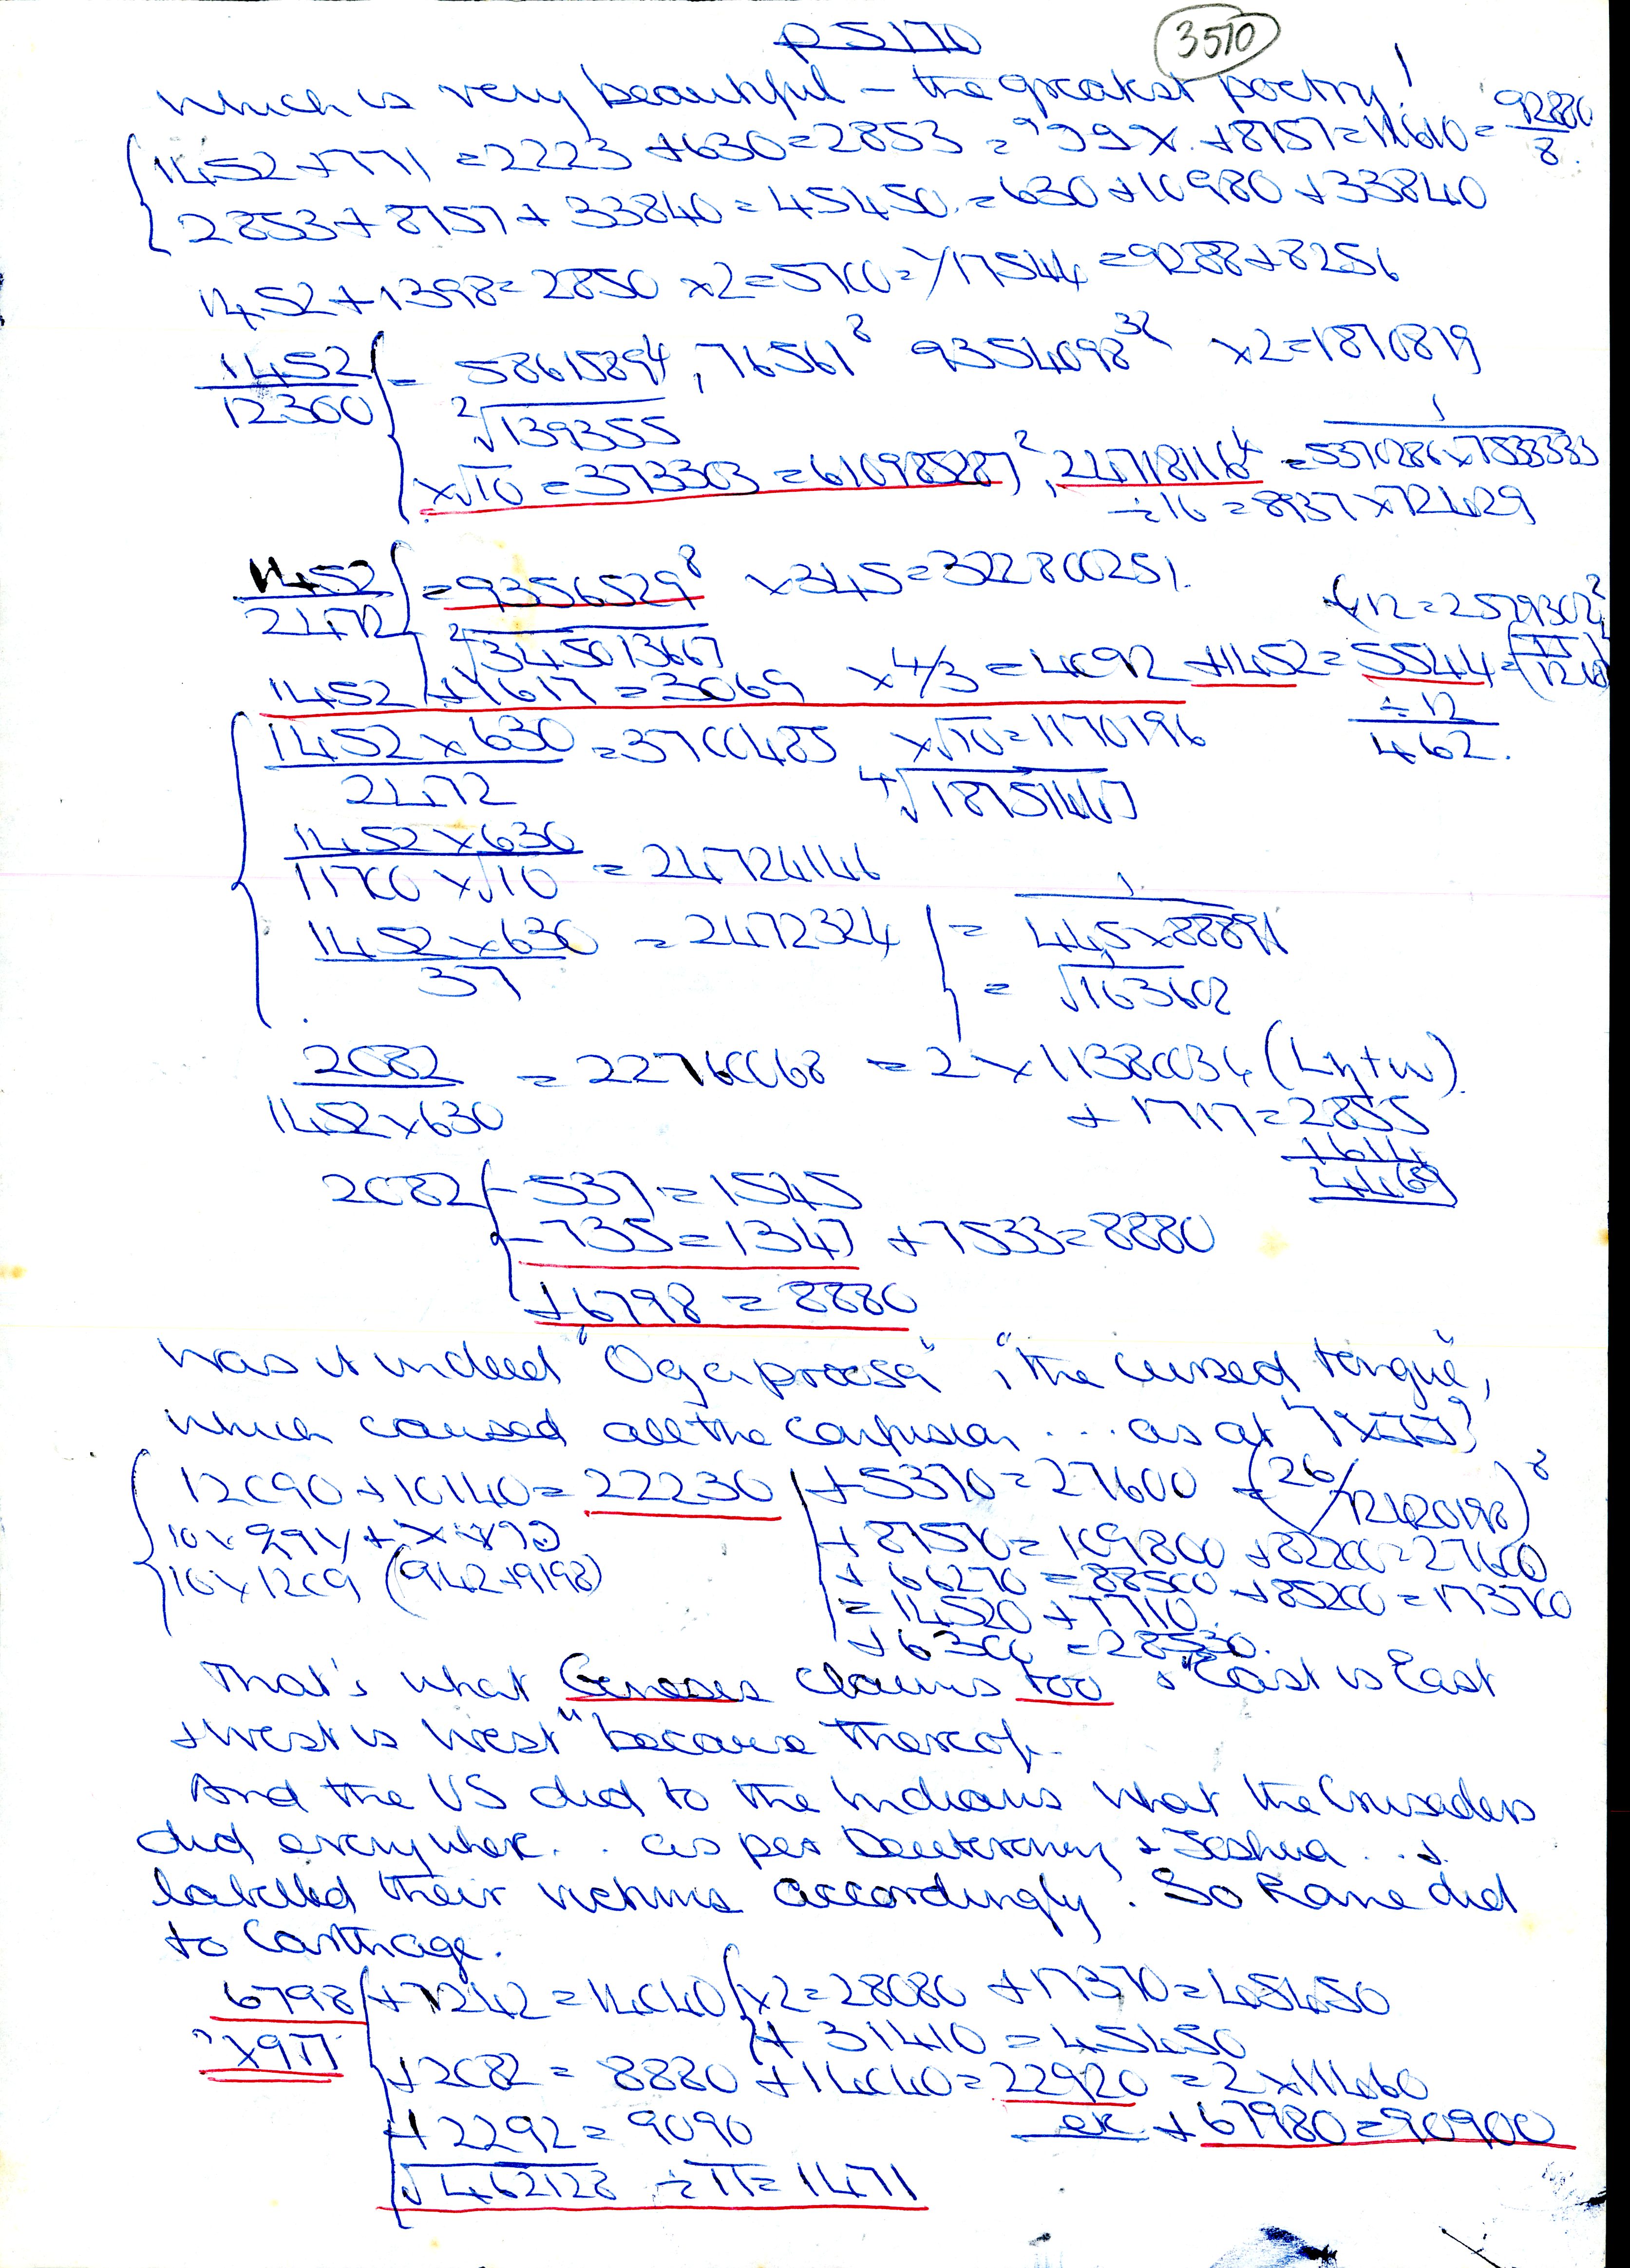 p 5170
3510
which is very beautiful – the greatest poetry!
1452 + 771 = 2223 + 630 = 2853 = + 8757 = 11610 = 92880/8
2853 + 8757 + 33840 = 45450 = 630 + 10980 + 33840
1452 + 1398 = 2850 x2 = 5700 = 17544 = 9288 + 8256
1452/12300 = 58615894, 76561⁸ 9354098³² x2 = 1870819
²√139355
x√10 = 373303 = 610985287², 247181164 = 1/5370286 x 7533333
÷16 = 8937 x 72429
1452/2472 = 9356529⁸ x345 = 32280025
²√345013667
1452 + 1617 = 3069 x 4/3 = 4092 + 1452 = 5544
÷12
462.
1452 x 630/2472 = 3700485 x√10 = 1170196
⁴√187514
1452 x 630/1170 x √10 = 24724146
1452 x 630/37 = 2472324 = 1/44,5 x 88891
= √163602
2082/1452 x 630 = 22760068 = 2 x 1138003
+ 1717 = 2855
+ 1614
4469
2082 – 537 = 1545
– 735 = 1347 + 7533 = 8880
+ 6798 = 8880
Was it indeed "the cursed tongue",
which caused all the confusion ... as at
12090 + 10140 = 22230 + 5370 = 27600
+ 87570 = 109800
10 x 1209 (942 + 9198) + 66270 = 88500 + 85200 = 173700
= 14520 + 7710
+ 6300 = 28530.
That's what Genesis claims too & "East is East
& West is West" because thereof.
And the US did to the Indians what the Crusaders
did everywhere .. as per Deuteronomy & Joshua ... &
labelled their victims accordingly. So Rome did
to Carthage.
6798 + 7242 = 14040 x2 = 28080 + 17370 = 45450
+ 31410 = 45450
+ 2082 = 8880 + 14040 = 22920 = 2 x 11460
+ 2292 = 9090 + 67980 = 90900
√462128 ÷ π = 1471